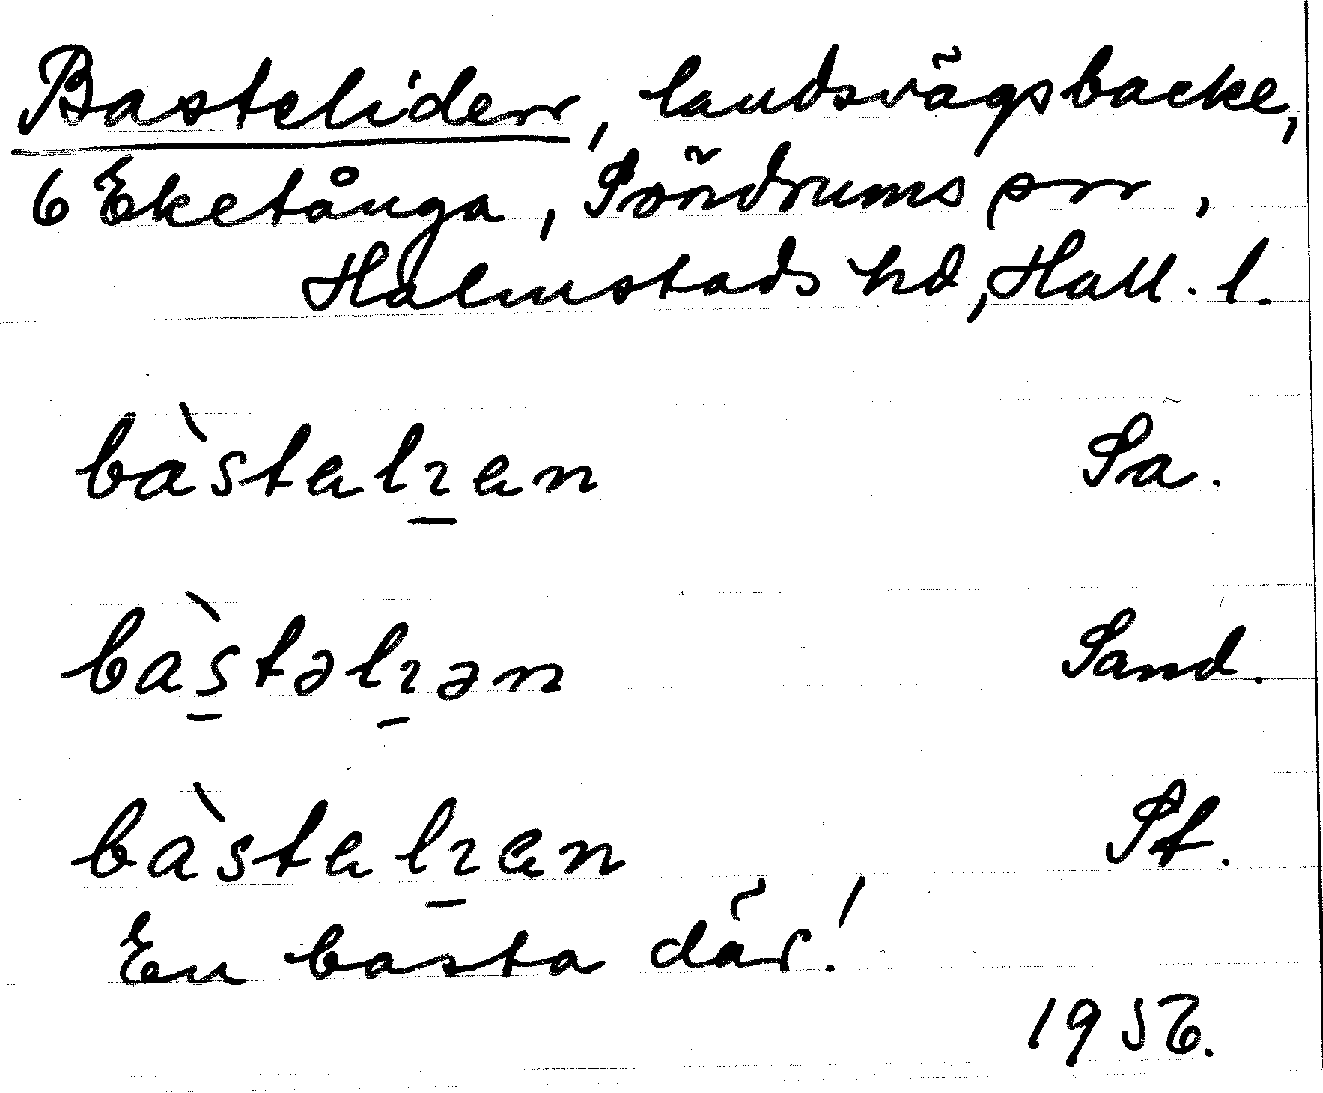 Basteliden, landsvägsbacke,
6 Eketånga, Söndrums sn,
Halmstads hd, Hall. l.
bàstelɿen Sa.
bàstəlɿən Sand.
bàstelɿen St.
En basta där!
1956.